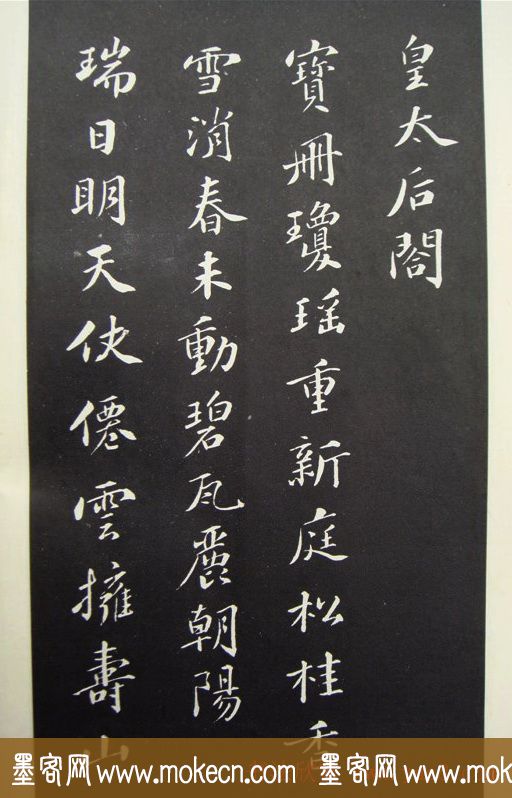 皇太后閤
寶冊瓊瑶重新庭松桂香
雪消春未動碧瓦麗朝陽
瑞日明天仗僊雲擁壽山
墨客网 www.mokecn.com 墨客网 www.mokecn.com